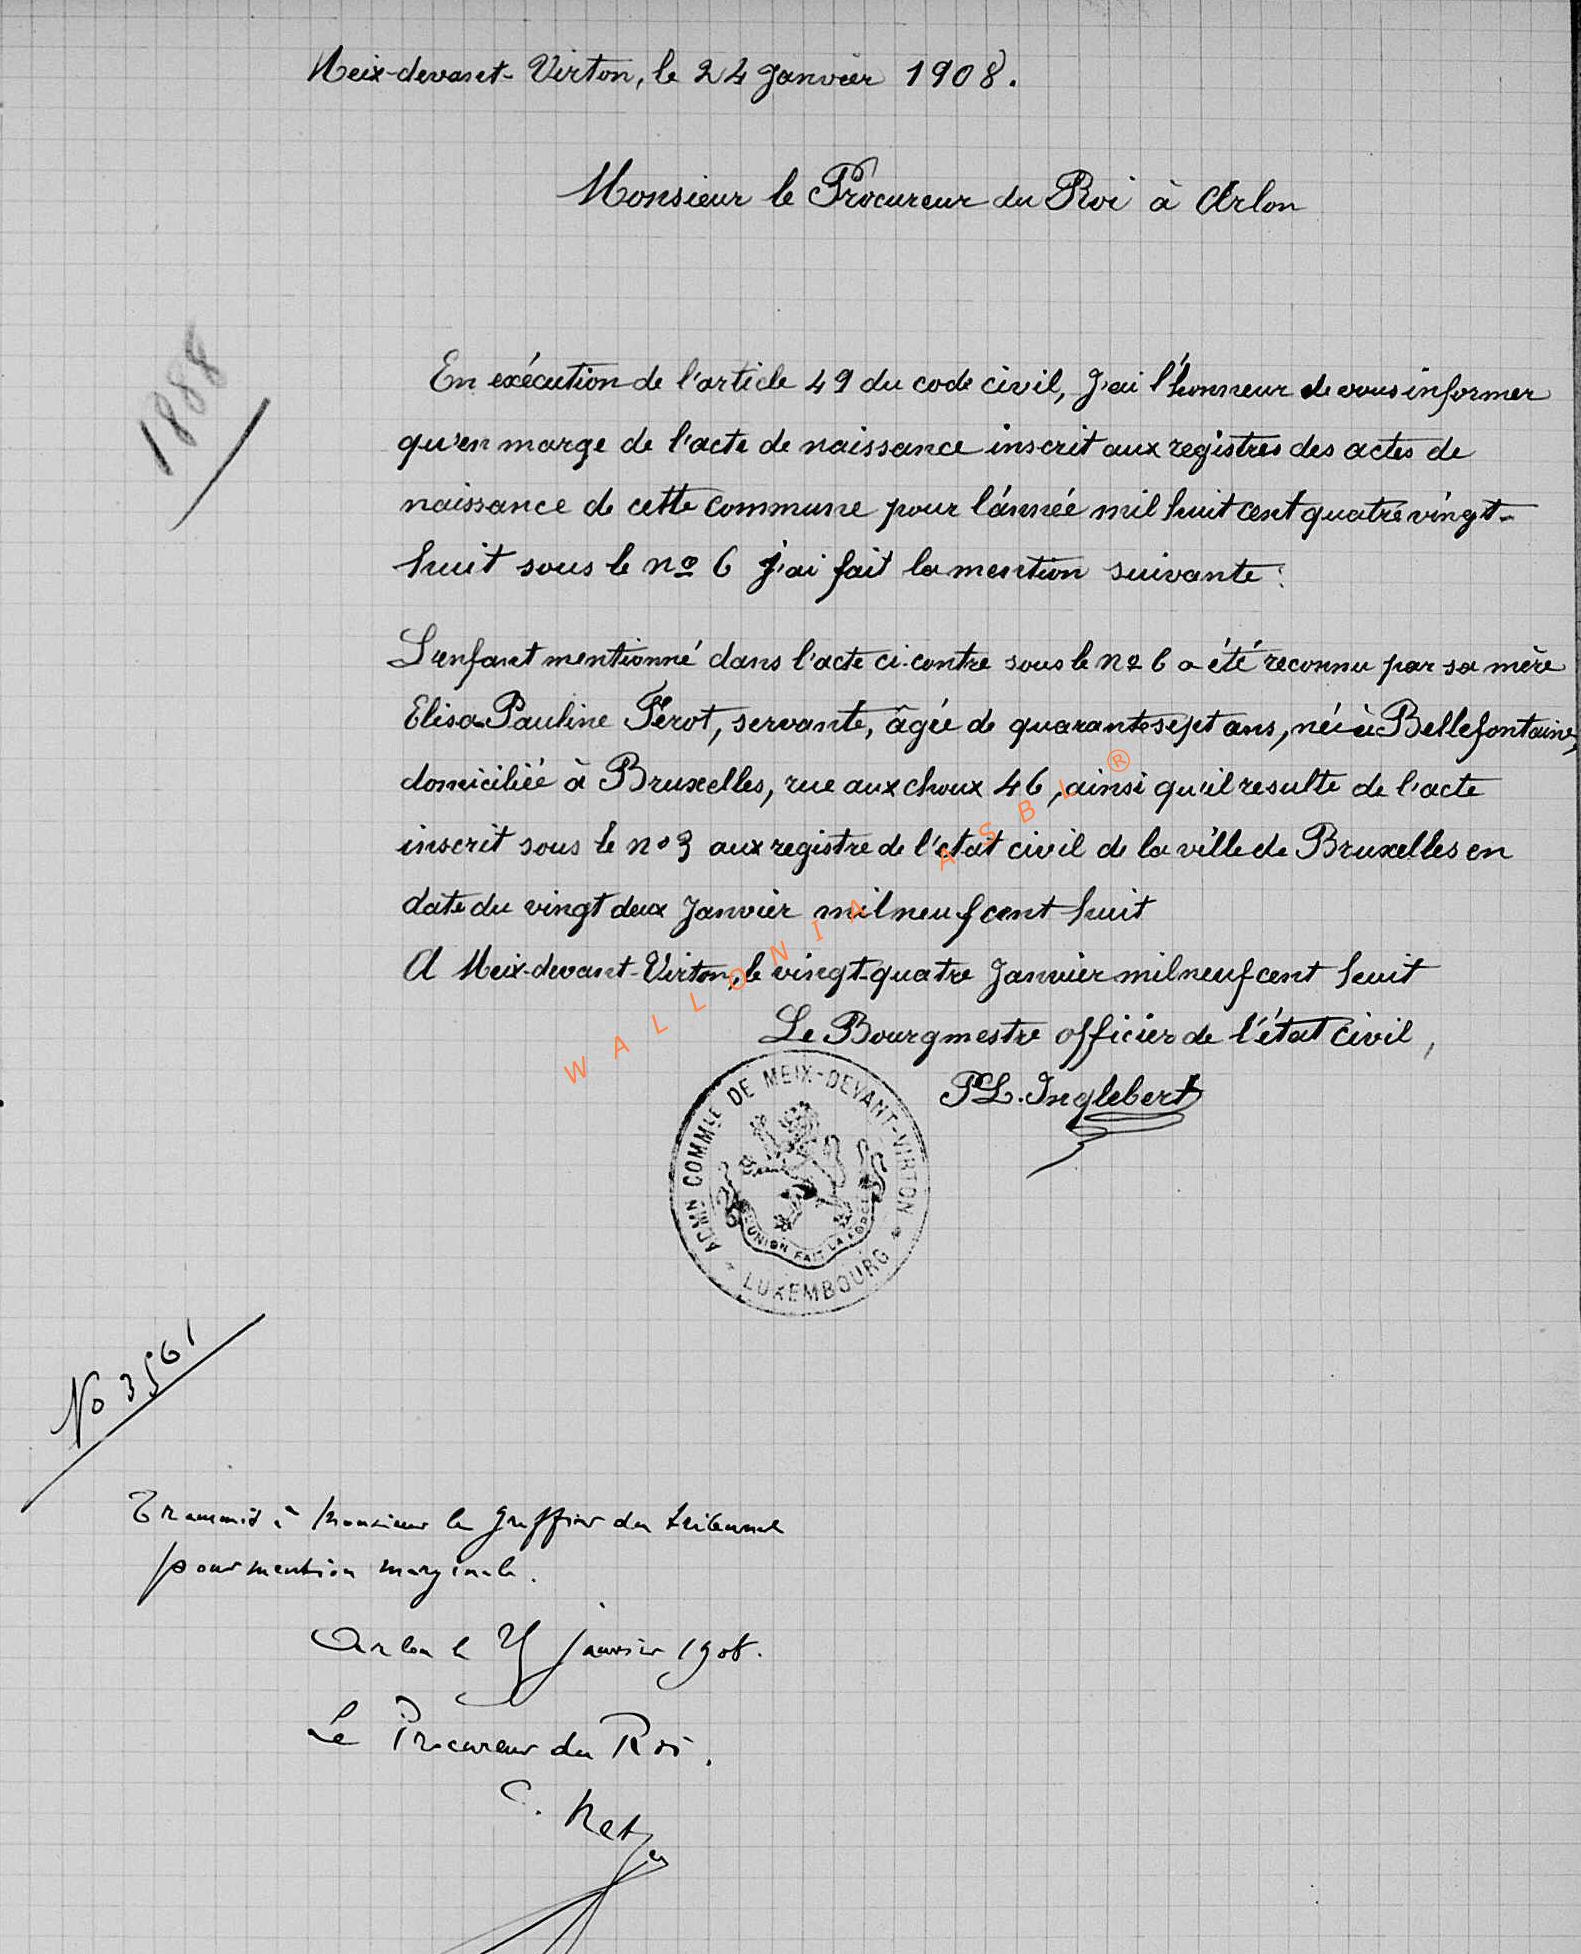 Meix-devant-Virton, le 24 Janvier 1908.
Monsieur le Procureur du Roi à Arlon
1888
En exécution de l'article 49 du code civil, J'ai l'honneur de vous informer
qu'en marge de l'acte de naissance inscrit aux registres des actes de
naissance de cette commune pour l'année mil huit cent quatre vingt-
huit sous le nº 6 j'ai fait la mention suivante :
L'enfant mentionné dans l'acte ci-contre sous le nº 6 a été reconnu par sa mère
Elisa Pauline Férot, servante, âgée de quarante sept ans, née à Bellefontaine,
domiciliée à Bruxelles, rue aux choux 46, ainsi qu'il resulte de l'acte
inscrit sous le nº 3 aux registre de l'etat civil de la ville de Bruxelles en
date du vingt deux Janvier mil neuf cent huit
A Meix-devant-Virton, le vingt-quatre Janvier mil neuf cent huit
Le Bourgmestre officier de l'état civil,
PL. Inglebert
ADMN COMMLE DE MEIX-DEVANT-VIRTON
UNION FAIT LA FORCE
LUXEMBOURG
WALLONIA ASBL ®
No 3561
Transmis à Monsieur le Greffier du tribunal
pour mention marginale.
Arlon le janvier 1908.
Le Procureur du Roi.
C.